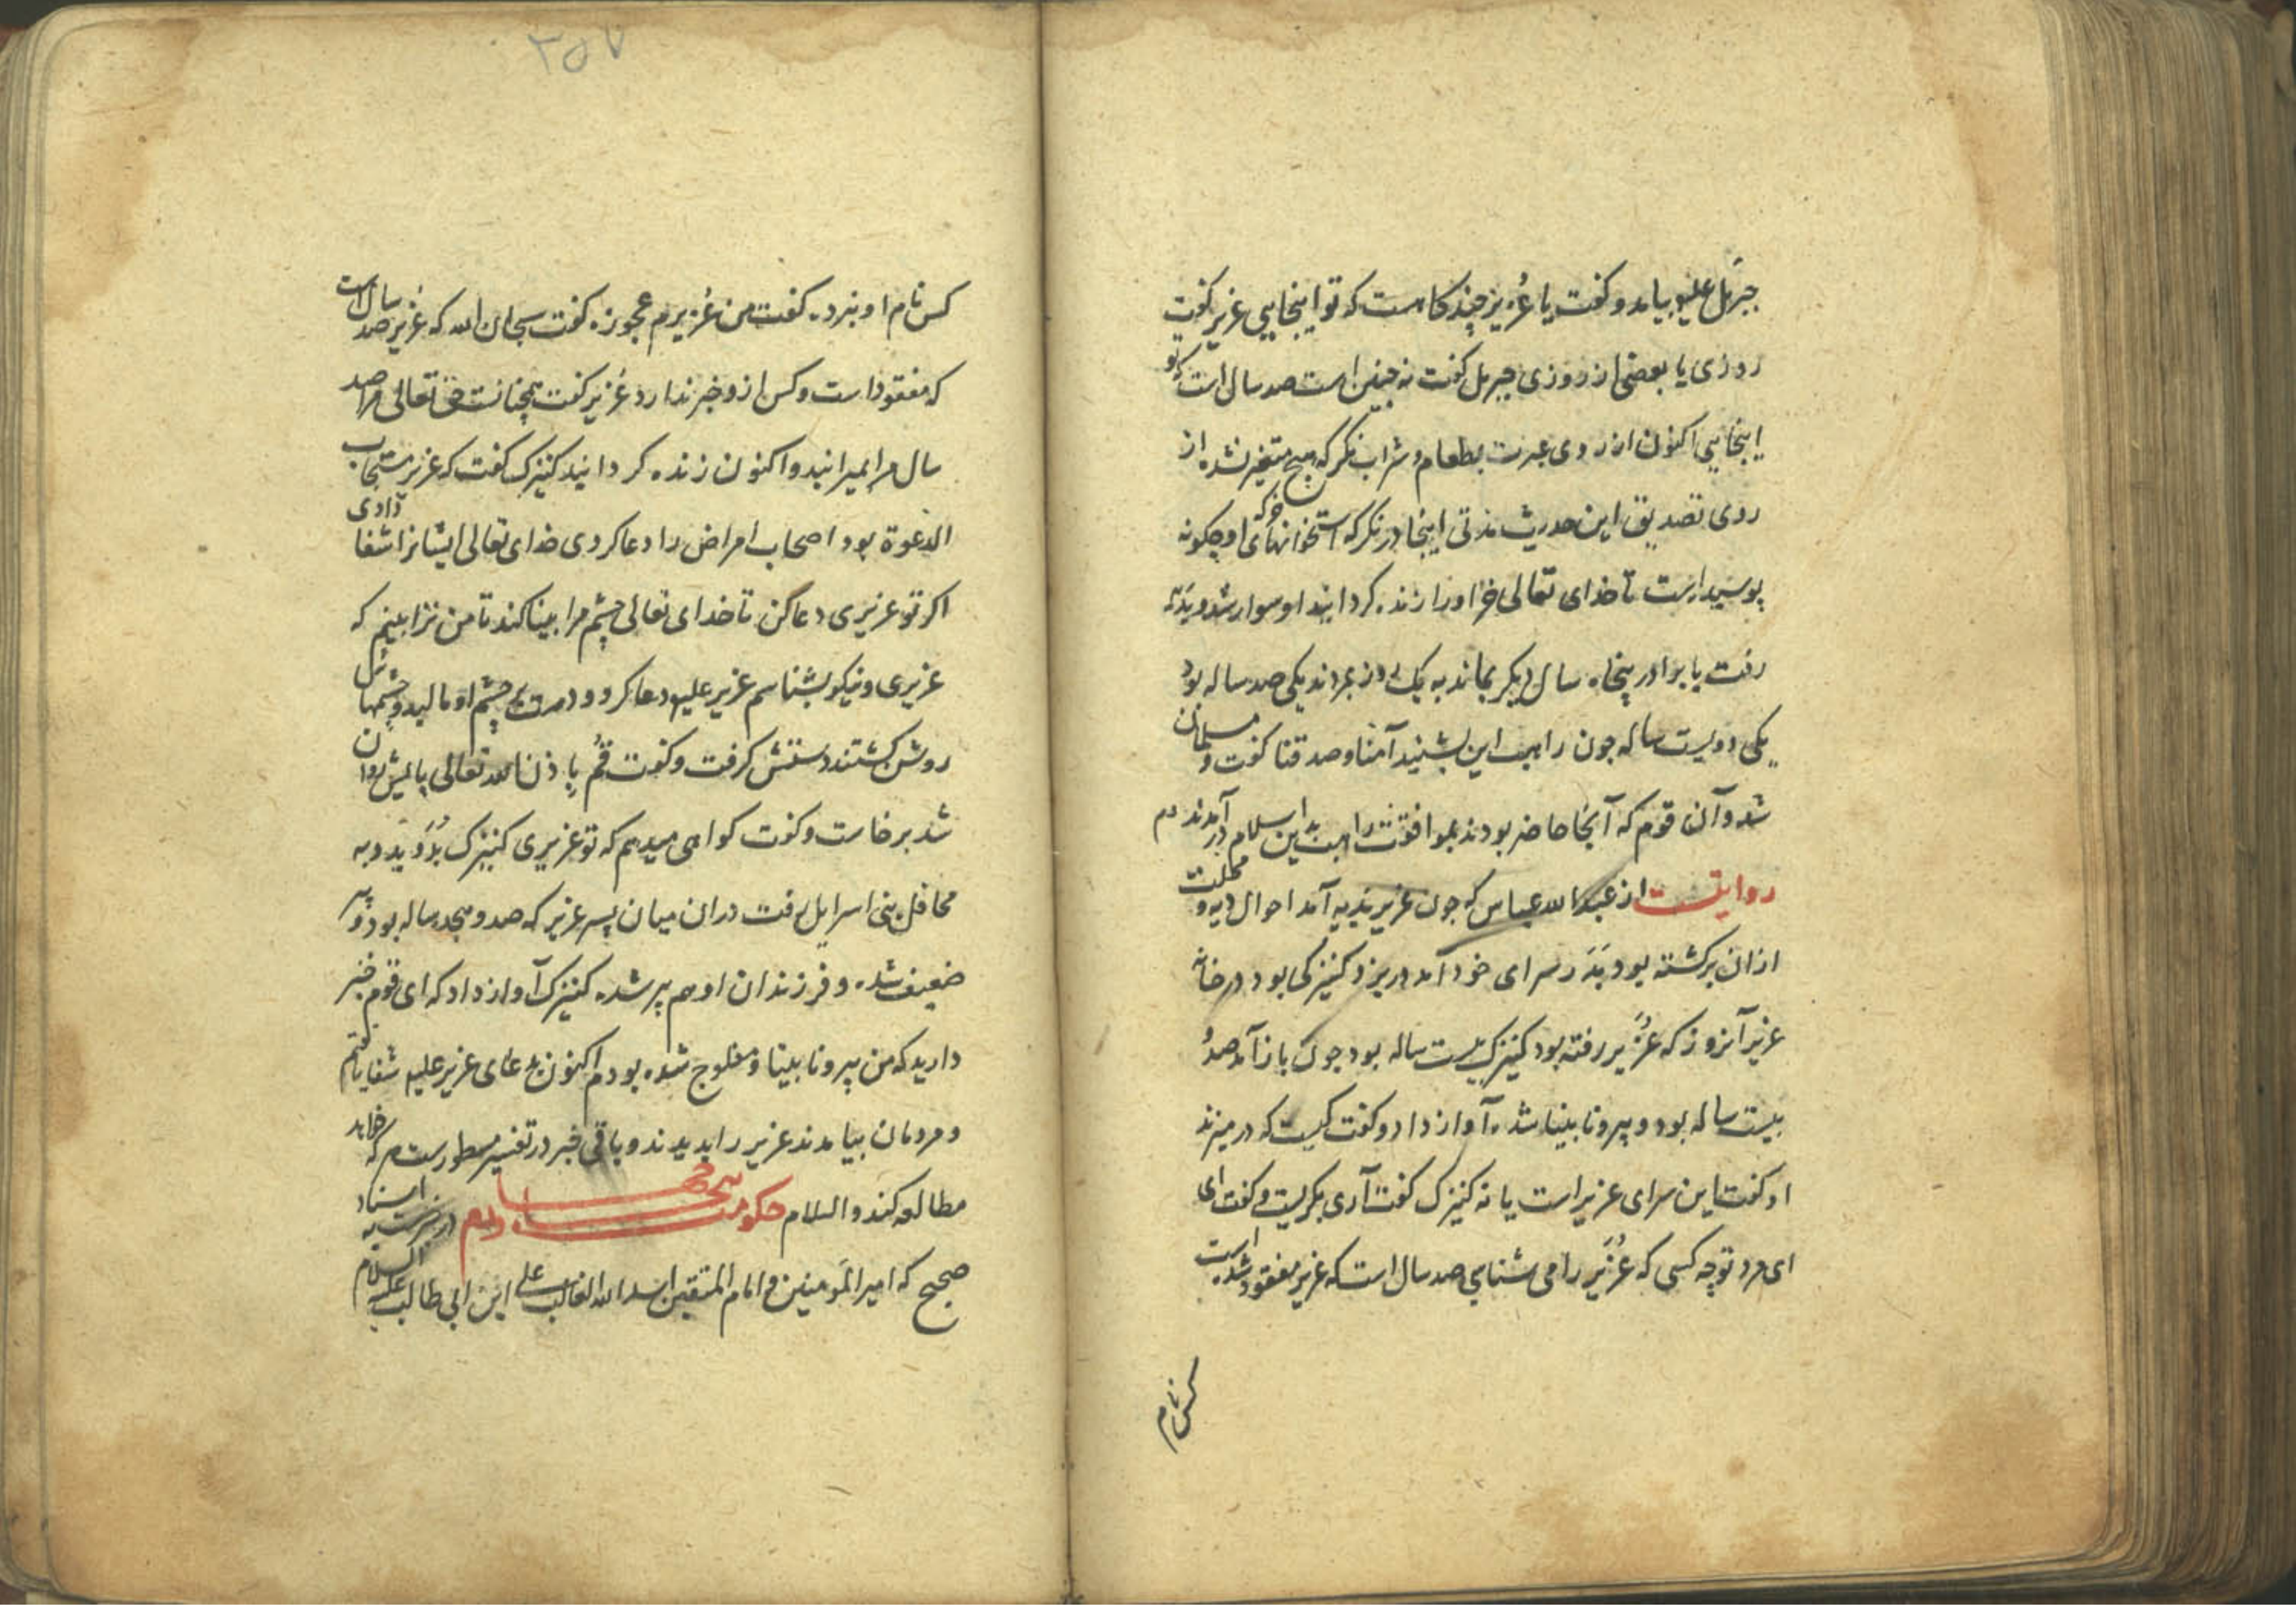 جبرئیل علیه بیامد و کفت یا عُزیر چند کاهست که تو اینجایی عزیر کفت
روزی یا بعضی از روزی جبرئیل کفت نه چنین است صد سال است که تو
اینجایی اکنون از روی عبرت بطعام و شراب نکر که هیچ متغیر نشده از
روی تصدیق این حدیث مدتی اینجا در نکر که استخوانهای خر او چکونه
پوسیده است تا خدای تعالی خر او را زنده کردانید او سوار شد و بدیه
رفت با برادر پنجاه سال دیکر بماند به یک روز بمردند یکی صد ساله بود
یکی دویست ساله چون راهب این بشنید آمنا و صدقنا کفت و مسلمان
شد و آن قوم که آنجا حاضر بودند بموافقت راهب بدین اسلام در آمدند
روایتست از عبد الله عباس که چون عزیر بدیه آمد احوال دیه و محلت
ازان برکشته بود بَدَر سرای خود آمد در بزد کنیزکی بود در خانه
عزیر آنروز که عُزَیر رفته بود کنیزک بیست ساله بود چون باز آمد صد و
بیست ساله بود و پیر و نابینا شده آواز داد و کفت کیست که در میزند
او کفت این سرای عزیر است یا نه کنیزک کفت آری بکریست و کفت ای
ای مرد تو چه کسی که عُزَیر را می شناسی صد سال است که عزیر مفقود شده است
کس نام
۲۵۷
کس نام او نبرده کفت من عُزیرم عجوزه کفت سبحان الله که عُزیر صد سال است
که مفقود است و کس ازو خبر ندارد عُزیر کفت همچنانست حق تعالی مرا صد
سال مرا بمیرانید و اکنون زنده کردانید کنیزک کفت که عزیر مستجاب
الدعوة بود اصحاب امراض را دعا کردی خدای تعالی ایشانرا شفا دادی
اکر تو عزیری دعا کن تا خدای تعالی چشم مرا بینا کند تا من ترا ببینم که
عزیری و نیکو بشناسم عزیر علیه دعا کرد و دست بر چشم او مالید و چشمهاش
روشن کشتند دستش کرفت و کفت قُم بِاذن الله تعالی پایش روان
شد برخاست و کفت کواهی میدهم که تو عزیری کنیزک بدَوید و به
محافل بنی اسرایل رفت دران میان پسر عزیر که صد و هجده ساله بود و پیر
ضعیف شده و فرزندان او هم پیر شده کنیزک آواز داد که ای قوم خبر
دارید که من پیر و نابینا و مفلوج شده بودم اکنون بدعای عزیر علیه شفا یافتم
و مردمان بیامدند عزیر را بدیدند و باقی خبر در تفسیر مسطورست هر که خواهد
مطالعه کند و السلام حکومت دوم در خبرست به اسناد
صحیح که امیر المومنین و امام المتقین اسد الله الغالب علی ابن ابی طالب علیه السلام